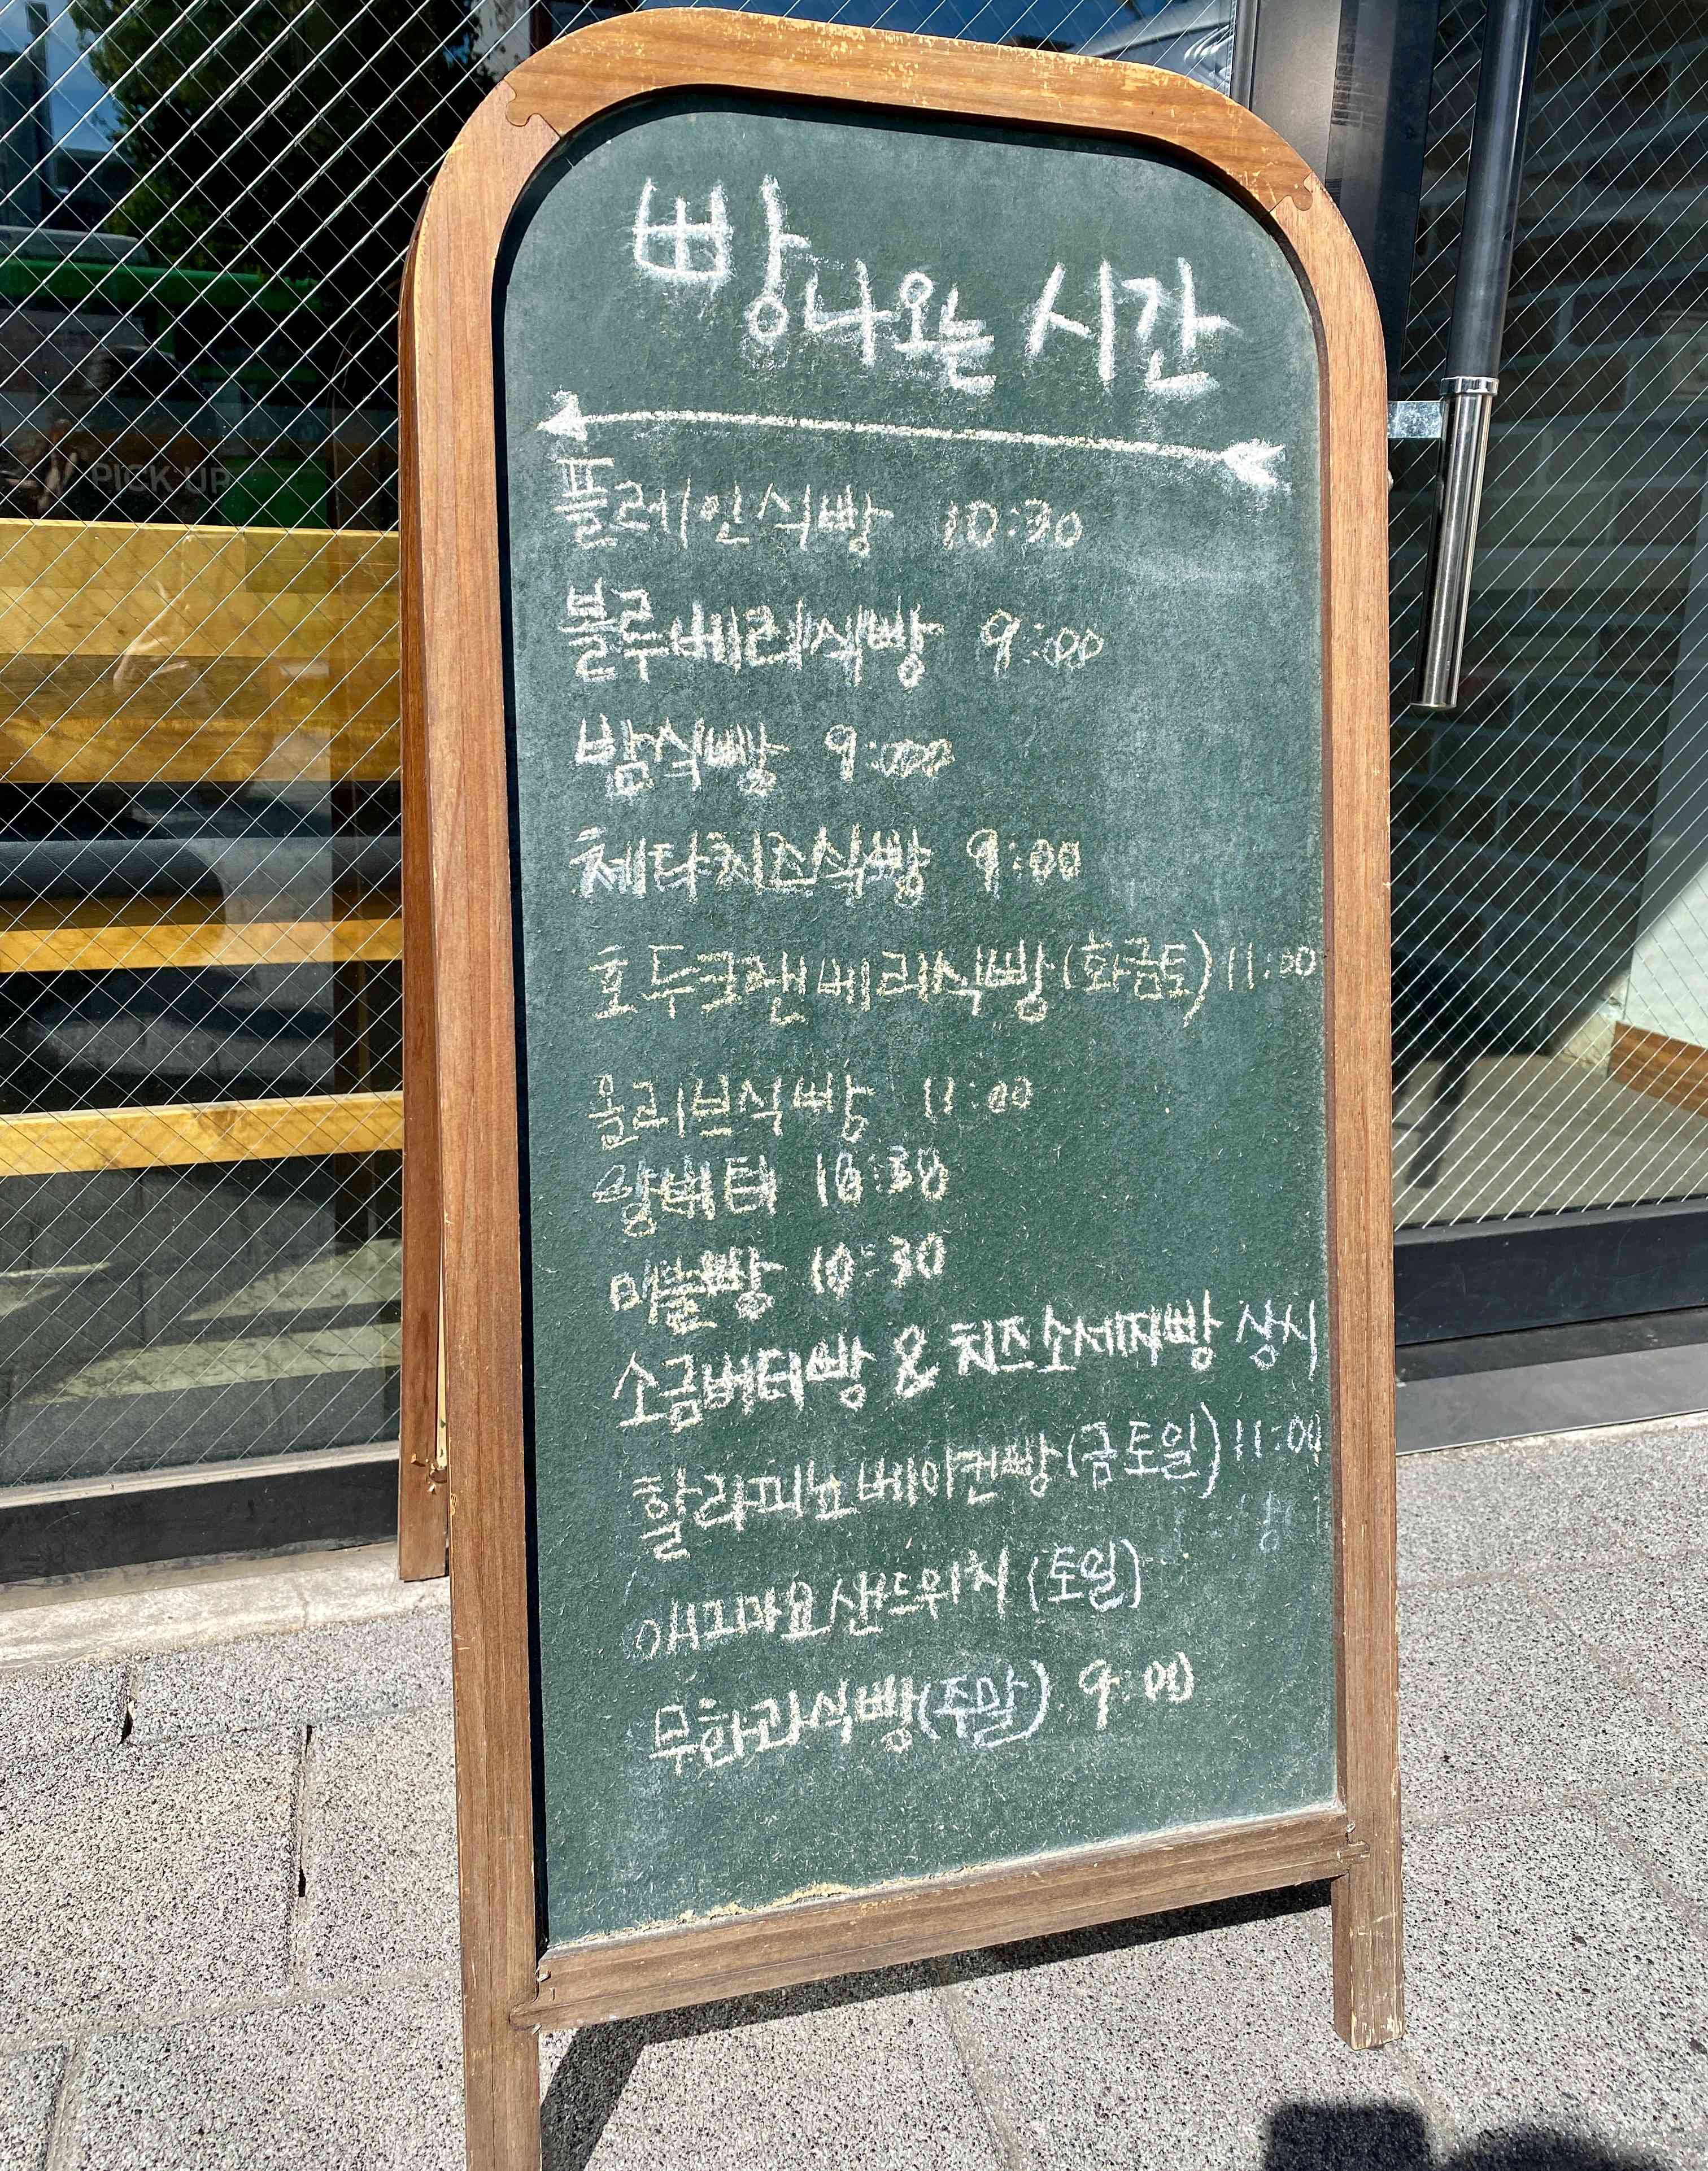 빵나오는 시간
플레인식빵 10:30
블루베리식빵 9:00
밤식빵 9:00
체다치즈식빵 9:00
호두크랜베리식빵(화금토) 11:00
올리브식빵 11:00
앙버터 10:30
먹물빵 10:30
소금버터빵 & 치즈소세지빵 상시
할라피뇨베이컨빵(금토일) 11:00
에그마요샌드위치 (토일)
무화과식빵(주말) 9:00
PICK UP